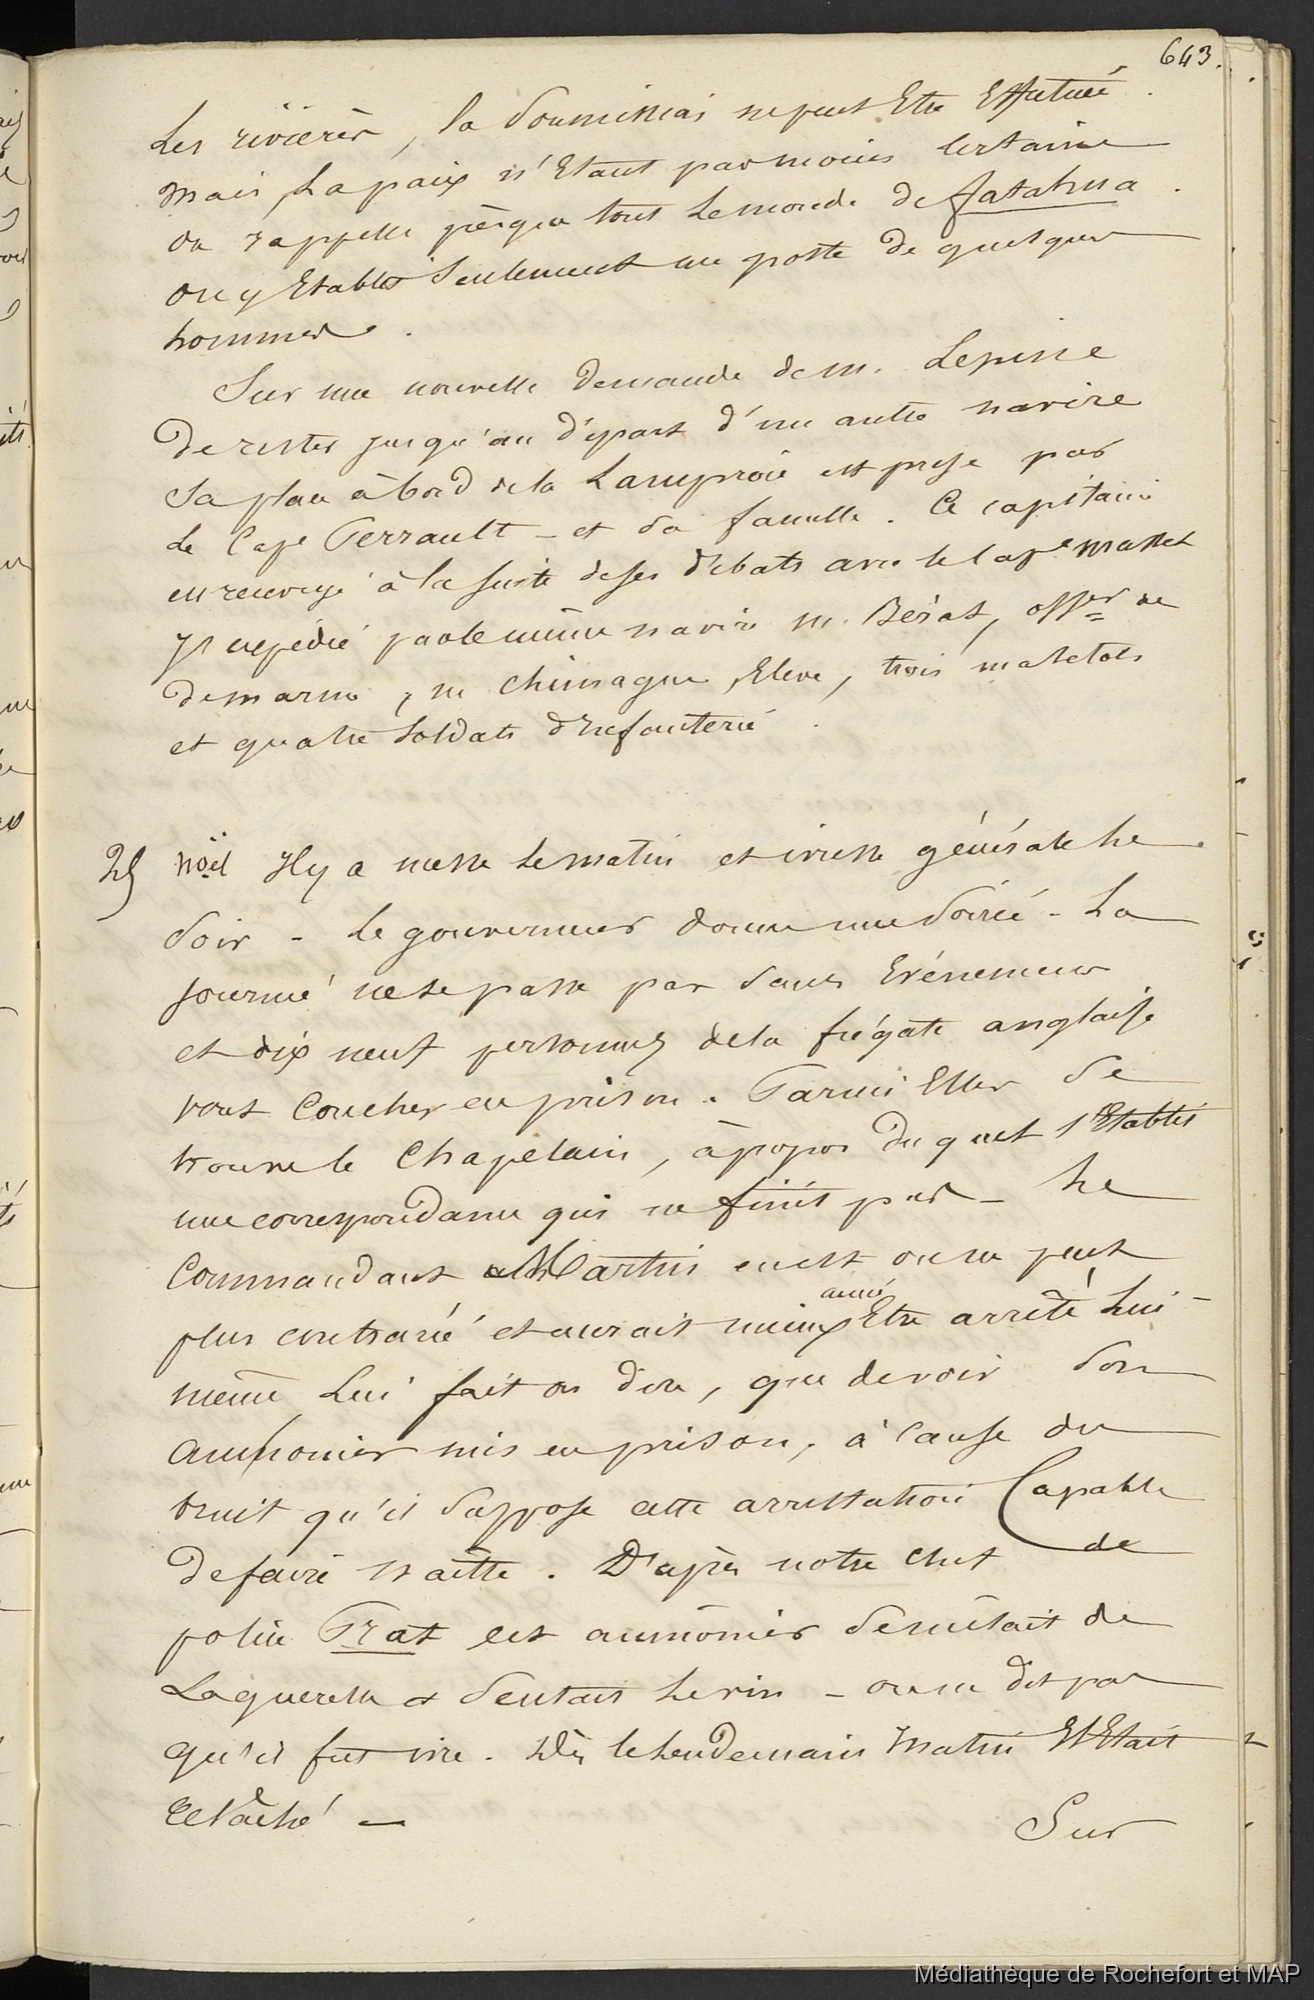 643.
Les rivières, la soumission ne peut Etre Effectuée.
Mais La paix n'Etant pas moins Certaine
On rappelle presque tout le monde de fatahua.
On y Etablit Seulement un poste de quelques
hommes.
Sur une nouvelle demande de M. Lepine
De rester jusqu'au départ d'un autre navire
Sa place à bord de la Lamproie est prise par
Le Cape Perrault - et sa famille. Ce capitaine
en renvoyé à la suite de ses débats avec le Cape Massé
Js expédié par le même navire M. Bérat, offer de
De marine, M Chimague, Eleve, trois matelots
et quatre Soldats d'Infanterie.
25 Noël Il y a messe le matin et ivresse générale le
Soir - Le gouverneur donne une Soirée - La
journée ne se passe pas sans Evénemens
et dix neuf personnes de la frégate anglaise
vont Coucher en prison. Parmi Elles se
trouve le Chapelain, à propos duquel s'Etablit
une correspondance qui ne finit pas - Le
Commandant Martin en est on ne peut
plus contrarié et aurait mieux aimé Etre arrêté Lui-
même Lui fait on dire, que de voir Son
Aumonier mis en prison, à Cause du
bruit qu'il Suppose cette arrestation Capable
de
De faire naître. D'après notre Chef
police Prat cet aumônier se mêlait de
La querelle et Sentait le vin - on ne dit pas
qu'il fut ivre. Dès le lendemain Matin Il Etait
relâché -
Sur
Médiathèque de Rochefort et MAP